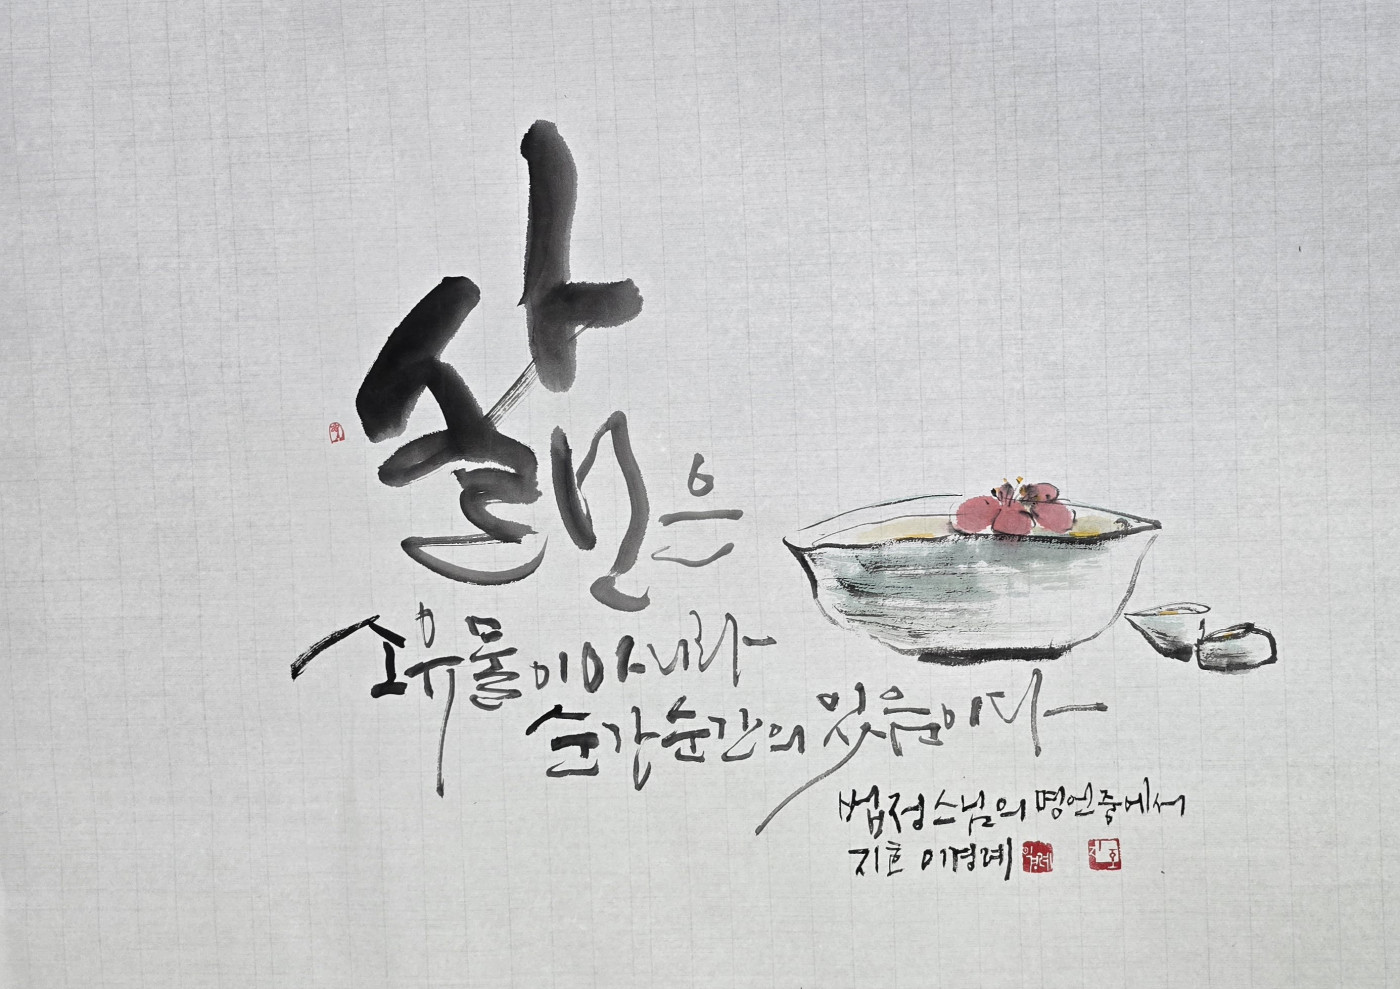 삶은
소유물이 아니라
순간순간의 있음이다
법정스님의 명언중에서
지호 이경례
이경례
지호